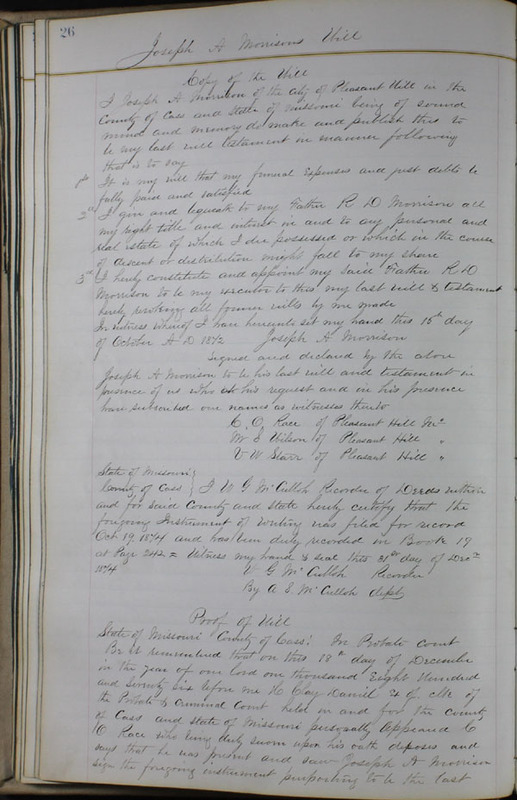 26
Joseph A Morrisons Will
Copy of the Will
I Joseph A Morrison of the city of Pleasant Hill in the
County of Cass and State of Missouri being of sound
mind and memory do make and publish this to
be my last will testament in manner following
that is to say
1st It is my will that my funeral expenses and just debts be
fully paid and satisfied
I give and bequeath to my Father R D Morrison all
my right title and interest in and to any personal and
real estate of which I die possessed or which in the course
of descent or distribution might fall to my share
3rd I hereby constitute and appoint my said Father R D
Morrison to be my executor to this my last will & testament
hereby revoking all former wills by me made
In witness whereof I have hereunto set my hand this 15th day
of October A D 1872 Joseph A Morrison
Signed and declared by the above
Joseph A Morrison to be his last will and testament in
presence of us who at his request and in his presence
have subscribed our names as witnesses thereto
C. O. Race of Pleasant Hill Mo
W S Wilson of Pleasant Hill "
V W Starr of Pleasant Hill "
State of Missouri
County of Cass } I W G McCulloh Recorder of Deeds within
and for said County and State hereby certify that the
foregoing Instrument of writing was filed for record
Oct 19, 1874 and has been duly recorded in Book 19
at Page 242 = Witness my hand & seal this 31st day of Dec
1874 W G McCulloh Recorder
By A S McCulloh depty
Proof of Will
State of Missouri County of Cass: In Probate Court
Be it remembered that on this 18th day of December
in the year of our lord on thousand Eight Hundred
and Seventy Six before me H Clay Daniel of
the Probate & Criminal Court held in and for the County
of Cass and State of Missouri personally appeared C
O Race who being duly sworn upon his oath deposes and
says that he was present and saw Joseph A Morrison
sign the foregoing instrument purporting to be the last